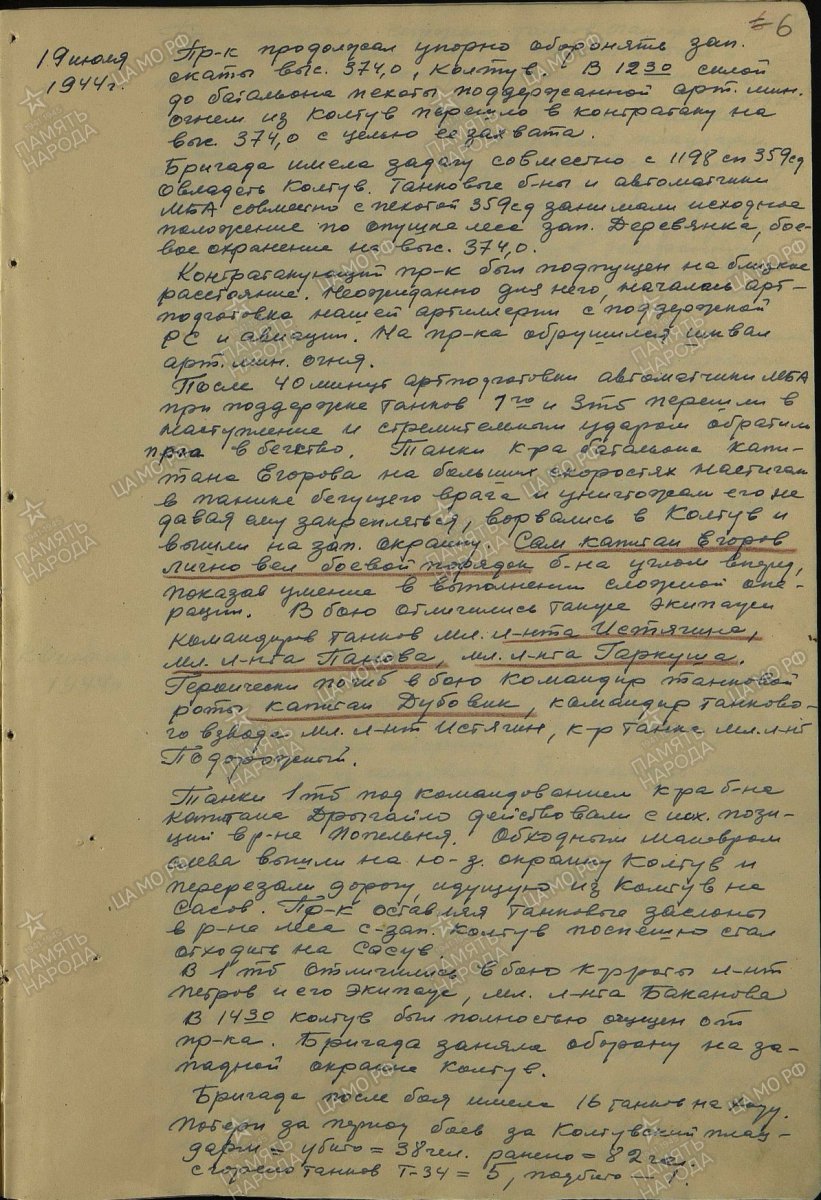 6
19 июля
1944 г.
Пр-к продолжал упорно оборонять зап.
скаты выс. 374,0, Колтув. В 12 30 силой
до батальона пехоты поддержанной арт. мин.
огнем из Колтув перешло в контратаку на
выс. 374,0 с целью ее захвата.
Бригада имела задачу совместно с 1198 сп 359 сд
овладеть Колтув. Танковые б-ны и автоматчики
МБА совместно с пехотой 359 сд занимали исходное
положение по опушке леса зап. Деревянка, бое-
вое охранение на выс. 374,0.
Контратакующий пр-к был подпущен на близкое
расстояние. Неожиданно для него, началась арт-
подготовка нашей артиллерии с поддержкой
РС и авиации. На пр-ка обрушился шквал
арт. мин. огня.
После 40 минут артподготовки автоматчики МБА
при поддержке танков 1го и 3тб перешли в
наступление и стремительным ударом обратили
пр-ка в бегство. Танки к-ра батальона капи-
тана Егорова на больших скоростях настигали
в панике бегущего врага и уничтожали его не
давая ему закрепляться, ворвались в Колтув и
вышли на зап. окраину. Сам капитан Егоров
лично вел боевой порядок б-на углом вперед,
показав умение в выполнении сложной опе-
рации. В бою отличились также экипажи
командиров танков мл. л-нта Истягина,
мл. л-нта Панова, мл. л-нта Гаркуша.
Героически погиб в бою командир танковой
роты капитан Дубовик, командир танково-
го взвода мл. л-нт Истягин, к-р танка мл. л-нт
Подорожный.
Танки 1 тб под командованием к-ра б-на
капитана Дрыгайло действовали с исх. пози-
ций в р-не Попельня. Обходным маневром
слева вышли на ю-з. окраину Колтув и
перерезали дорогу, идущую из Колтув на
Сасов. Пр-к оставляя танковые заслоны
в р-не леса с-зап. Колтув поспешно стал
отходить на Сасув.
В 1 тб отличились в бою к-р роты л-нт
Петров и его экипаж, мл. л-нта Баканова
В 14 30 Колтув был полностью очищен от
пр-ка. Бригада заняла оборону на за-
падной окраине Колтув.
Бригада после боя имела 16 танков на ходу.
Потери за период боев за Колтувский плац-
дарм = убито = 38 чел. ранено = 82 чел.
сгорело танков Т-34 = 5, подбито —